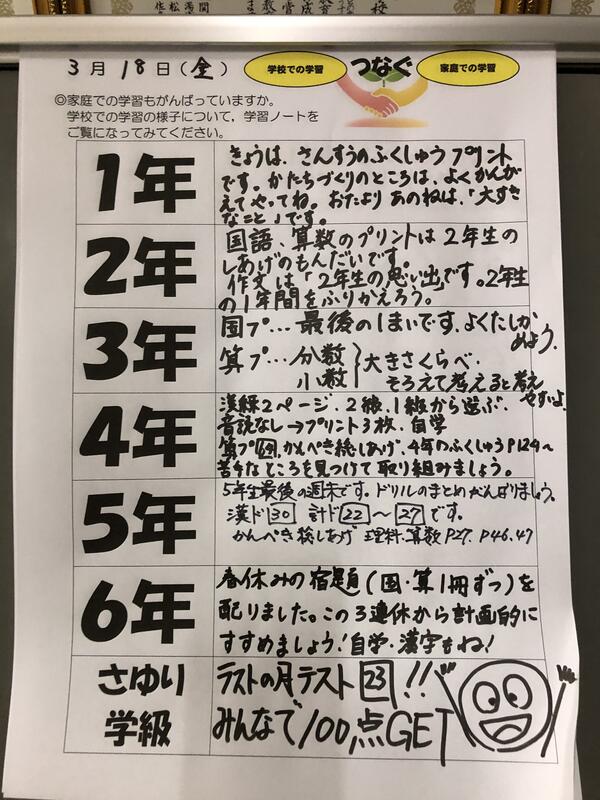 3月18日(金)
学校での学習
つなぐ
家庭での学習
◎家庭での学習もがんばっていますか。
学校での学習の様子について，学習ノートを
ご覧になってみてください。
1年
きょうは、さんすうのふくしゅうプリント
です。かたちづくりのところは、よくかんが
えてやってね。おたより あのねは、「大すき
なこと」です。
2年
国語、算数のプリントは2年生の
しあげのもんだいです。
作文は「2年生の思い出」です。2年生
の1年間をふりかえろう。
3年
国プ…最後の1まいです、よくたしか
めよう、
算プ…分数
小数
大きさくらべ、
そろえて考えると考え
やすいよ
4年
漢練2ページ、2級、1級から選ぶ、
音読なし→プリント3枚、自学
算プ64、かんぺき総しあげ、4年のふくしゅうP124～
苦手なところを見つけて取り組みましょう。
5年
5年生最後の週末です。ドリルのまとめがんばりましょう。
漢ド30 計ド22～27です。
かんぺき総しあげ 理科、算数P27、P46、47
6年
春休みの宿題(国・算1冊ずつ)を
配りました。この3連休から計画的に
すすめましょう！自学・漢字もね！
さゆり
学級
ラストの月テスト23!!
みんなで100点GET